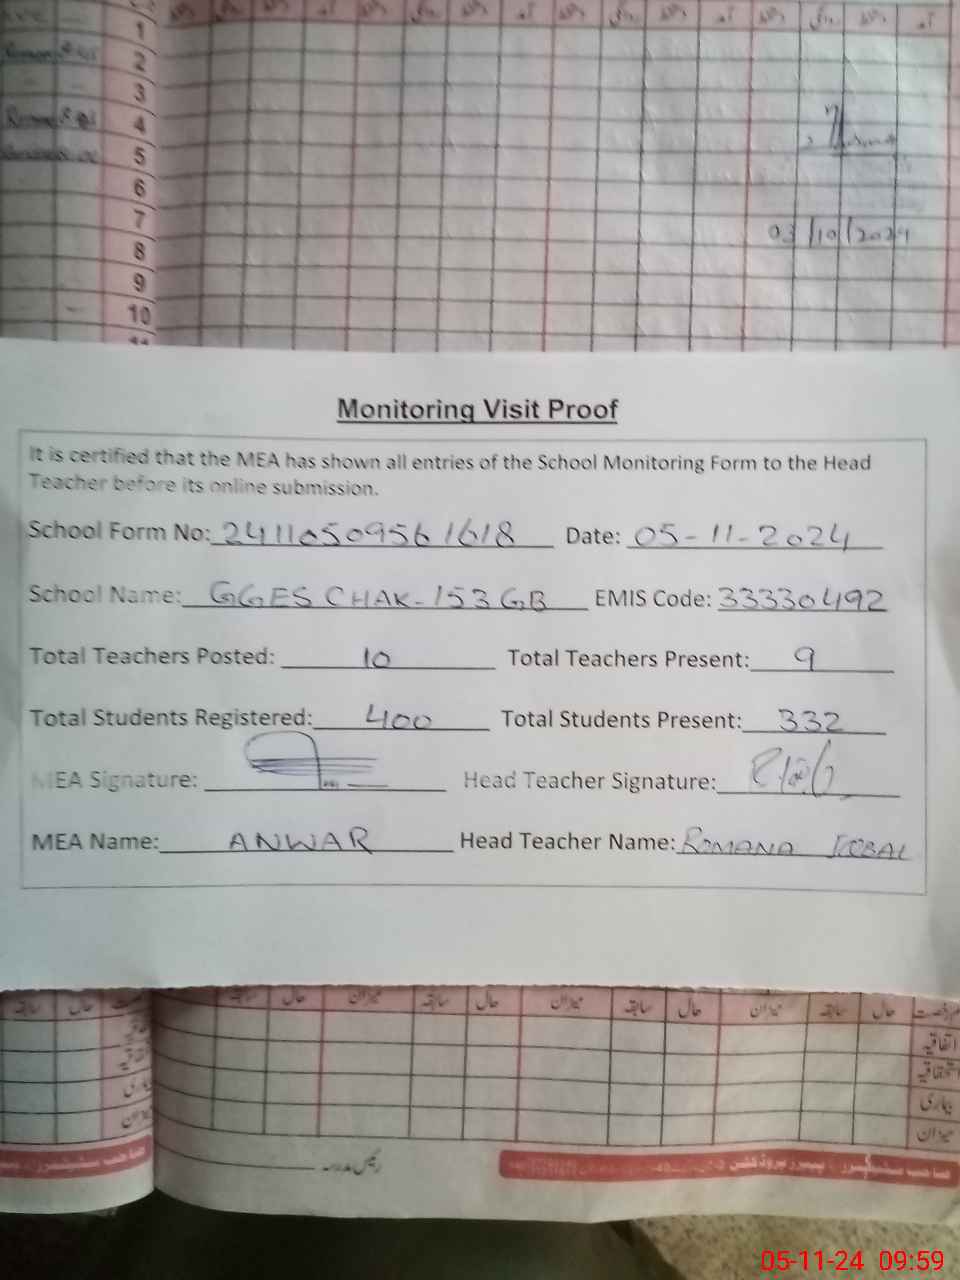 1
2
3
4
5
6
7
8
9
10
03/10/2024
Monitoring Visit Proof
It is certified that the MEA has shown all entries of the School Monitoring Form to the Head
Teacher before its online submission.
School Form No: 24110509561618 Date: 05-11-2024
School Name: GGES CHAK-153 GB EMIS Code: 33330492
Total Teachers Posted: 10 Total Teachers Present: 9
Total Students Registered: 400 Total Students Present: 332
MEA Signature: Head Teacher Signature:
MEA Name: ANWAR Head Teacher Name: ROMANA IQBAL
سابقہ حال میزان سابقہ حال میزان سابقہ حال میزان سابقہ حال
اتفاقیہ
استحقاقیہ
بیماری
میزان
رئیس مدرسہ
05-11-24 09:59